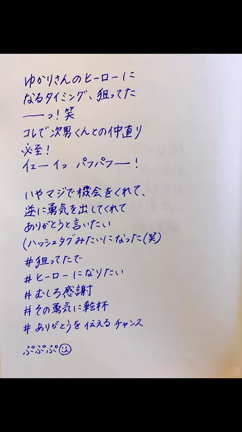 ゆかりさんのヒーローに
なるタイミング、狙ってた
――っ!笑
コレで次男くんとの仲直り
必至!
イェーイっ パフパフー!
いやマジで機会をくれて、
逆に勇気を出してくれて
ありがとうと言いたい
(ハッシュタグみたいになった(笑)
#狙ってたで
#ヒーローになりたい
#むしろ感謝
#その勇気に乾杯
#ありがとうを伝えるチャンス
ぷぷぷ